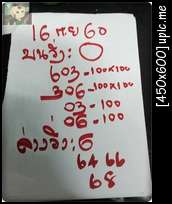 16 ก.ย 60
บนวิ่ง: 0
603-100x100
306-100x100
03-100
06-100
ล่างวิ่ง: 6
64 66
68
[450x600] upic.me